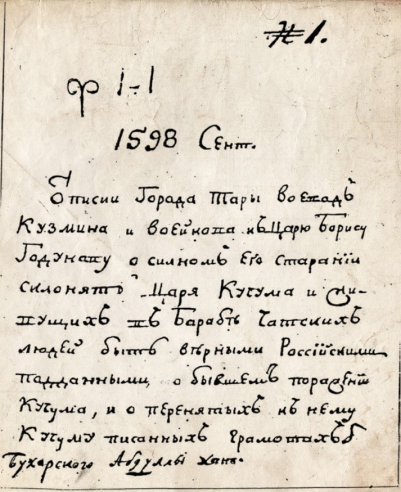 № 1.
ф 1-1
1598 Сент.
Отписки Города Тары воевадъ
Кузмина и воейкопа къ Царю Борису
Годунапу о силномъ Его Старанïи
склонять Царя Кучума и жи-
пущихъ пъ Барабѣ Чатскихъ
людей быть вѣрными Россïйскими
падданными, о бывшемъ поражен
Кучума, и о перенятыхъ къ нему
Кучуму писанныхъ грамотахъ
Бухарского Абдуллы хана.